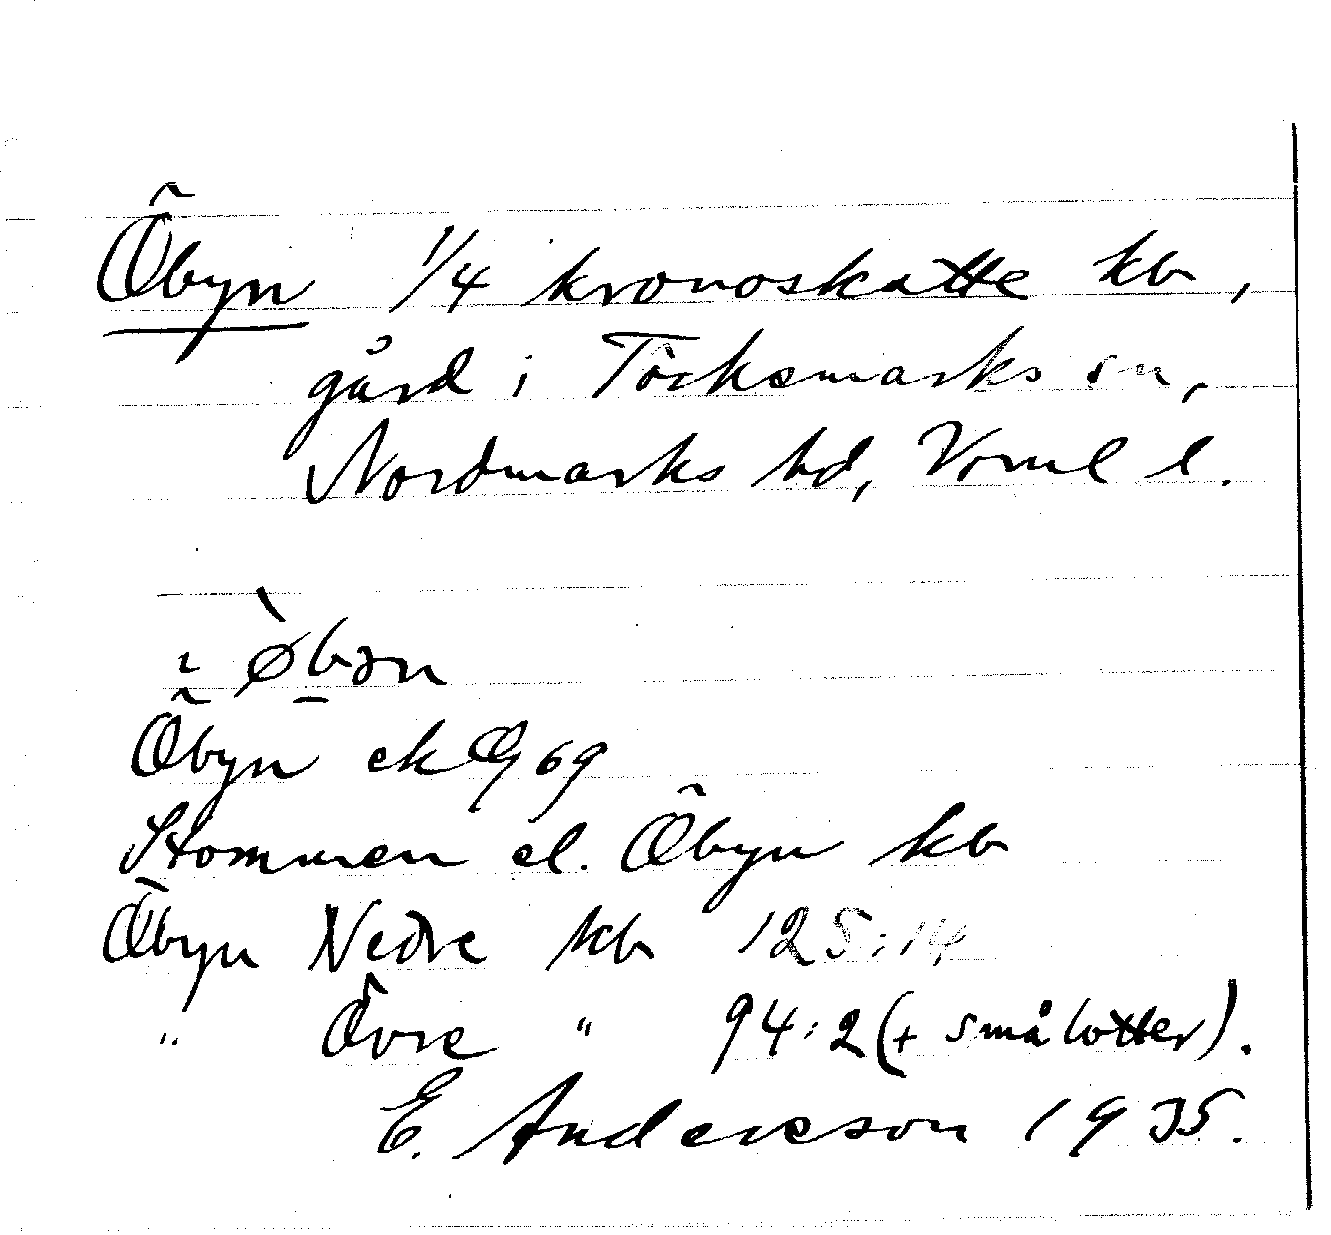 Öbyn 1/4 kronoskatte kb,
gård i Töcksmarks sn,
Nordmarks hd, Verml l.
i ø̀bən
Öbyn ek 69
Stommen el. Öbyn kb
Öbyn Nedre kb 125:14
" Övre " 94:2 (+ små lotter).
E. Andersson 1935.